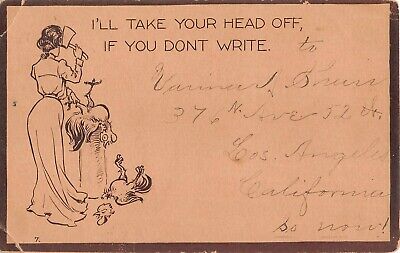 I'LL TAKE YOUR HEAD OFF,
IF YOU DONT WRITE.
to
376 N. Ave 52
Los Angeles
California
so now!
7.